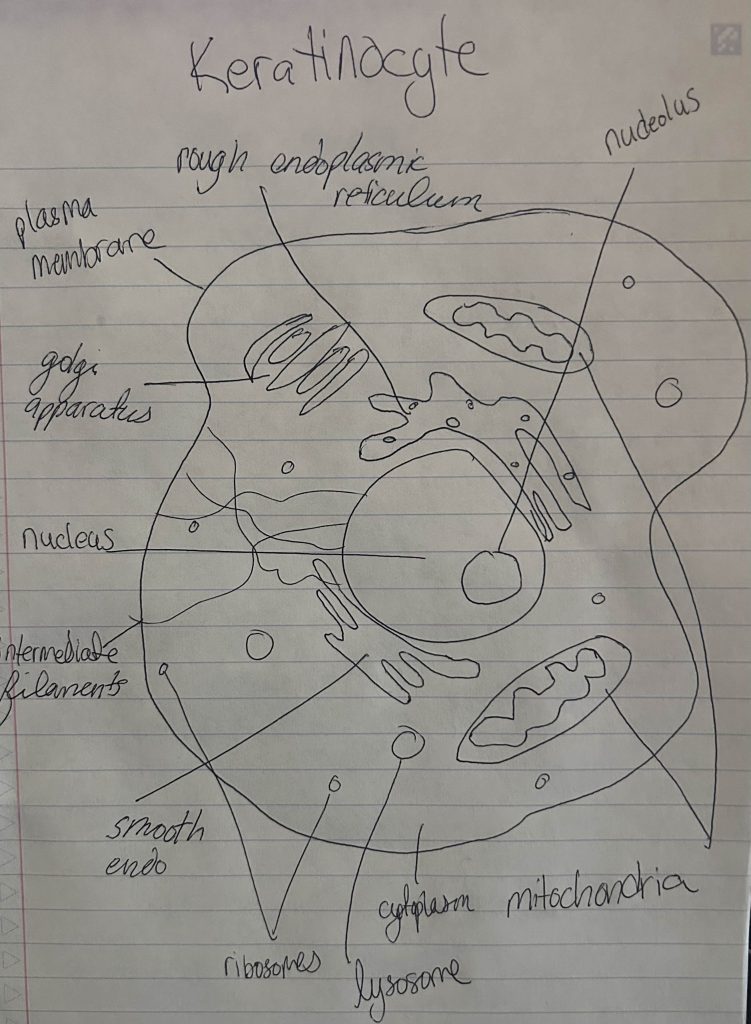 Keratinocyte
nucleolus
rough endoplasmic
reticulum
plasma
membrane
golgi
apparatus
nucleus
intermediate
filaments
smooth
endo
cytoplasm
mitochondria
ribosomes
lysosome